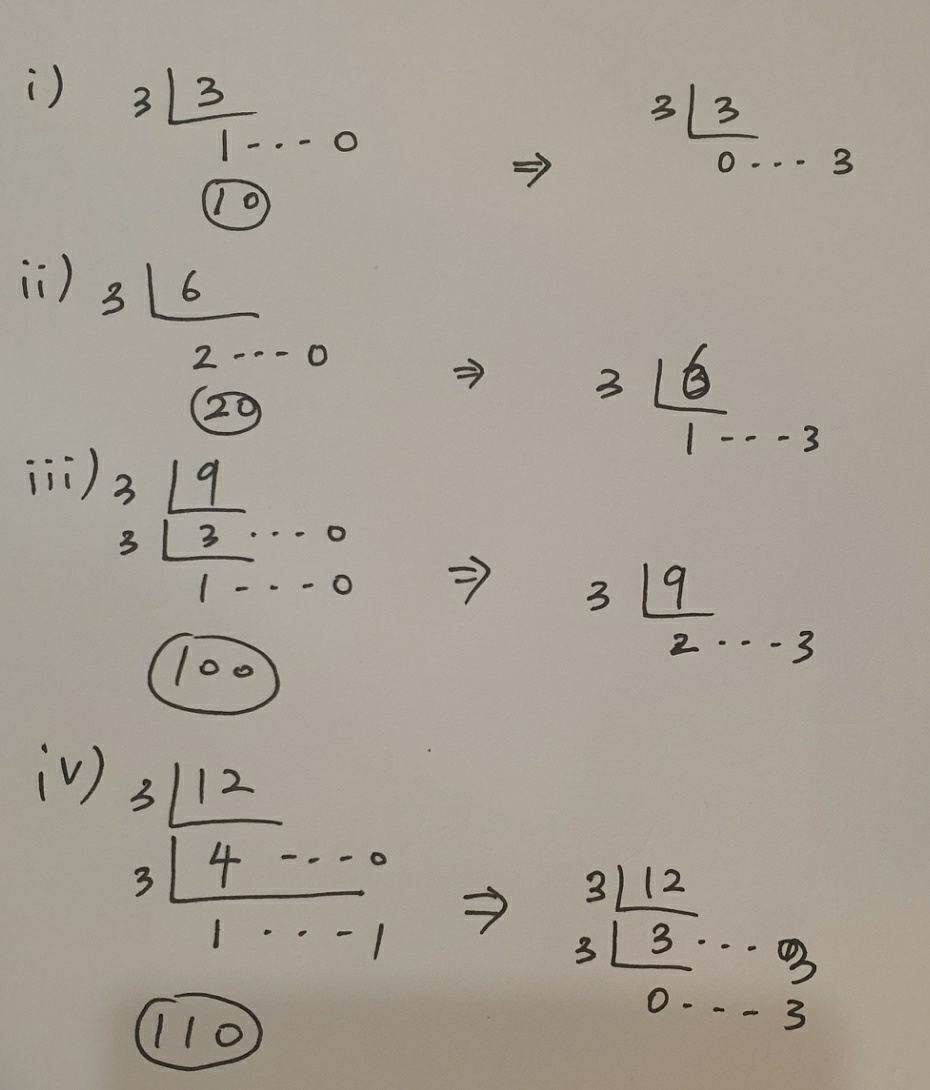 i) 3 | 3 ⇒ 3 | 3
1 --- 0 0 --- 3
10
ii) 3 | 6
2 --- 0 ⇒ 3 | 6
20 1 --- 3
iii) 3 | 9
3 | 3 --- 0
1 --- 0 ⇒ 3 | 9
100 2 --- 3
iv) 3 | 12
3 | 4 --- 0 ⇒ 3 | 12
1 --- 1 3 | 3 --- 3
110 0 --- 3